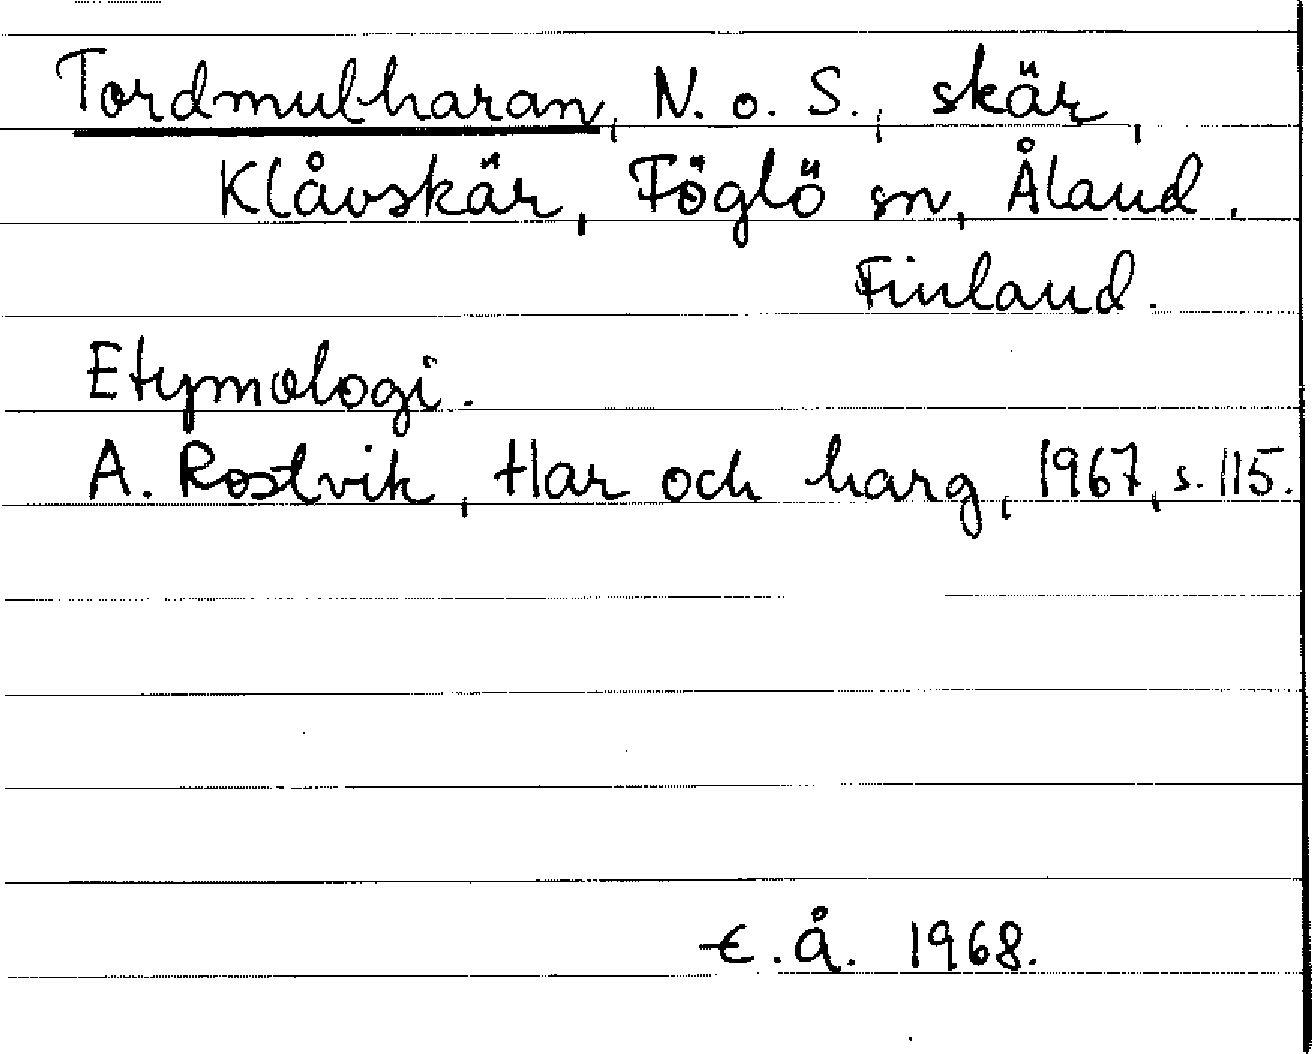 Tordmulharan, N. o. S., skär,
Klåvskär, Föglö sn, Åland.
Finland.
Etymologi.
A. Rostvik, Har och harg, 1967, s. 115.
E. Å. 1968.